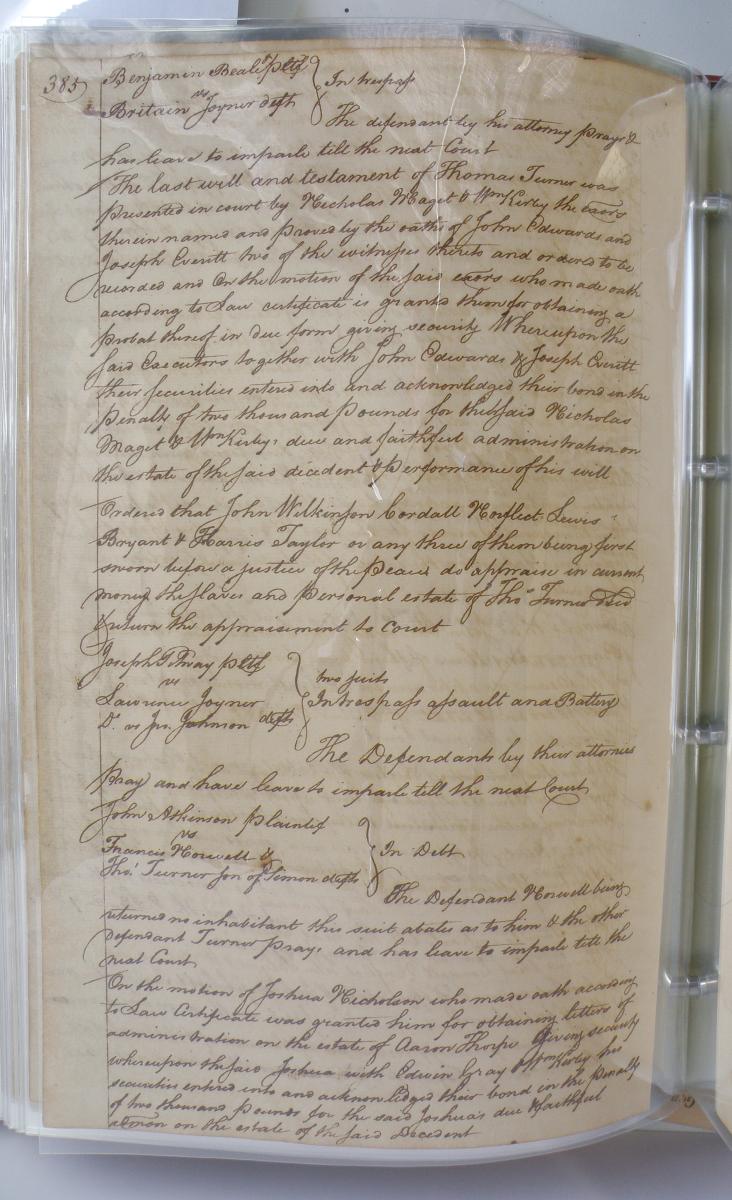 385
Benjamin Beale pltf
vs
Britain Joyner deft
In trespass
The defendant by his attorney prays &
has leave to imparle till the next Court
The last will and testament of Thomas Turner was
presented in court by Nicholas Maget & Wm Kirby the exors
therein named and proved by the oaths of John Edwards and
Joseph Everitt two of the witnesses thereto and ordered to be
recorded and On the motion of the said exors who made oath
according to Law certificate is granted them for obtaining a
probat thereof in due form giving security Whereupon the
said Executors together with John Edwards & Joseph Everitt
their securities entered into and acknowledged their bond in the
penalty of two thousand pounds for the said Nicholas
Maget & Wm Kirbys due and faithful administration on
the estate of the said decedent & performance of his will
Ordered that John Wilkinson Cordall Norflect Lewis
Bryant & Harris Taylor or any three of them being first
sworn before a justice of the Peace do appraise in current
money the slaves and personal estate of Thos Turner decd
& return the appraisement to court
Joseph pltf
vs
Lawrence Joyner
Do vs Jno Johnson defts
two suits
In trespass assault and Battery
The Defendants by their attornies
pray and have leave to imparle till the next Court
John Atkinson plaintif
vs
Francis Norwell &
Thos Turner son of Simon defts
In Debt
The Defendant Norwell being
returned no inhabitant this suit abates as to him & the other
defendant Turner prays and has leave to imparle till the
next Court
On the motion of Joshua Nicholson who made oath according
to Law Certificate was granted him for obtaining letters of
administration on the estate of Aaron Thorpe Giving security
whereupon the said Joshua with Edwin Gray & Wm Kirby his
securities entered into and acknowledged their bond in the penalty
of two thousand pounds for the said Joshua's due & faithful
admon on the estate of the said Decedent